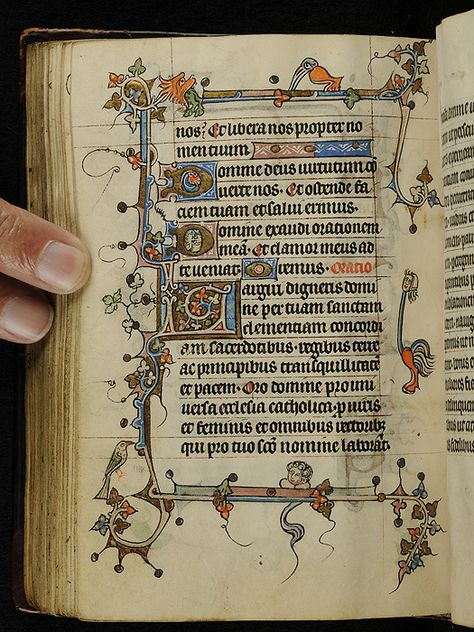 nos? Et libera nos propter no
men tuum
Domine deus virtutum cō
verte nos. Et ostende fa
ciem tuam et salvi erimus.
Domine exaudi orationem
meā. Et clamor meus ad
te veniat. Oremus. Oratio
Largiri digneris domi
ne per tuam sanctam
clementiam concordi
am sacerdotibus. regibus terre
ac principibus tranquillitatē
et pacem. Oro domine pro uni
versa ecclesia catholica. p viris
et feminis et omnibus rectoribus
qui pro tuo scō nomine laborāt.